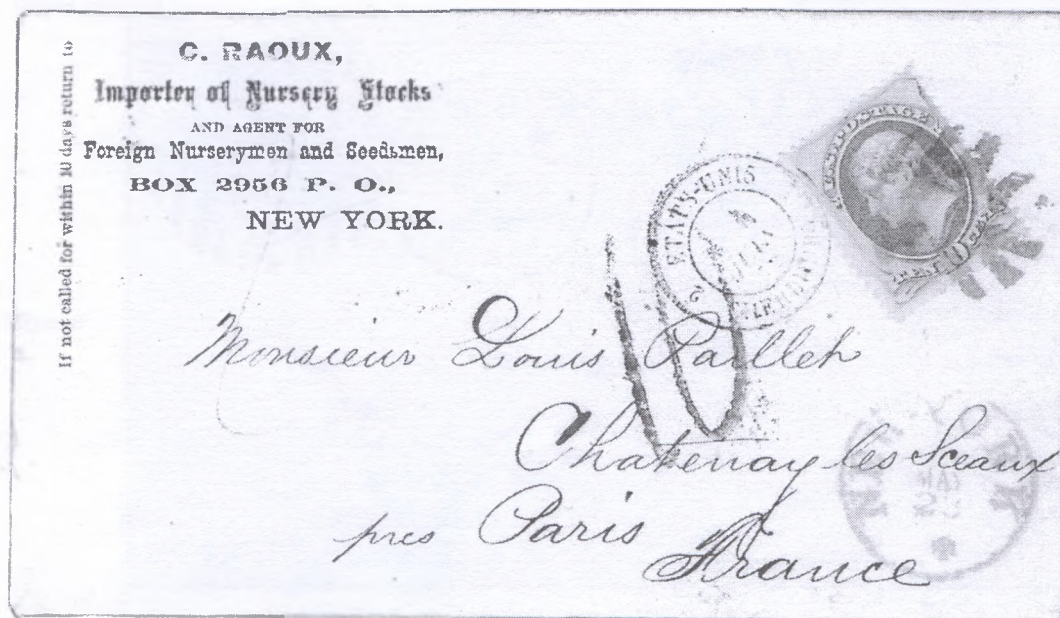 If not called for within 10 days return to
C. RAOUX,
Importer of Nursery Stocks
AND AGENT FOR
Foreign Nurserymen and Seedsmen,
BOX 2956 P. O.,
NEW YORK.
U.S. POSTAGE
ETATS-UNIS
10
Monsieur Louis Paillet
Chatenay les Sceaux
pres Paris
France